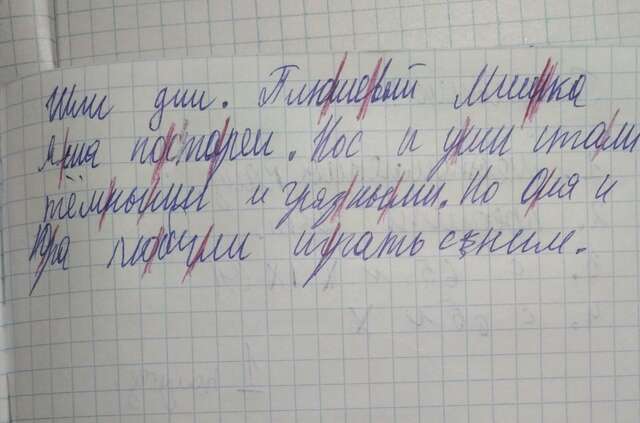 Шли дни. Плюшевый Мишка
Яша постарел. Нос и уши стали
тёмными и грязными. Но Оля и
Юра любили играть с ним.